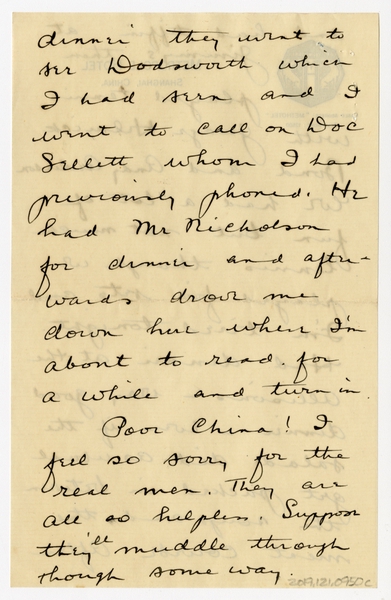 dinner they went to
see Dodsworth which
I had seen and I
went to call on Doc
Sellett whom I had
previously phoned. He
had Mr Nicholson
for dinner and after-
wards drove me
down here when I'm
about to read for
a while and turn in.
Poor China! I
feel so sorry for the
real men. They are
all so helpless. Suppose
they'll muddle through
though some way.
2019.121.0950c